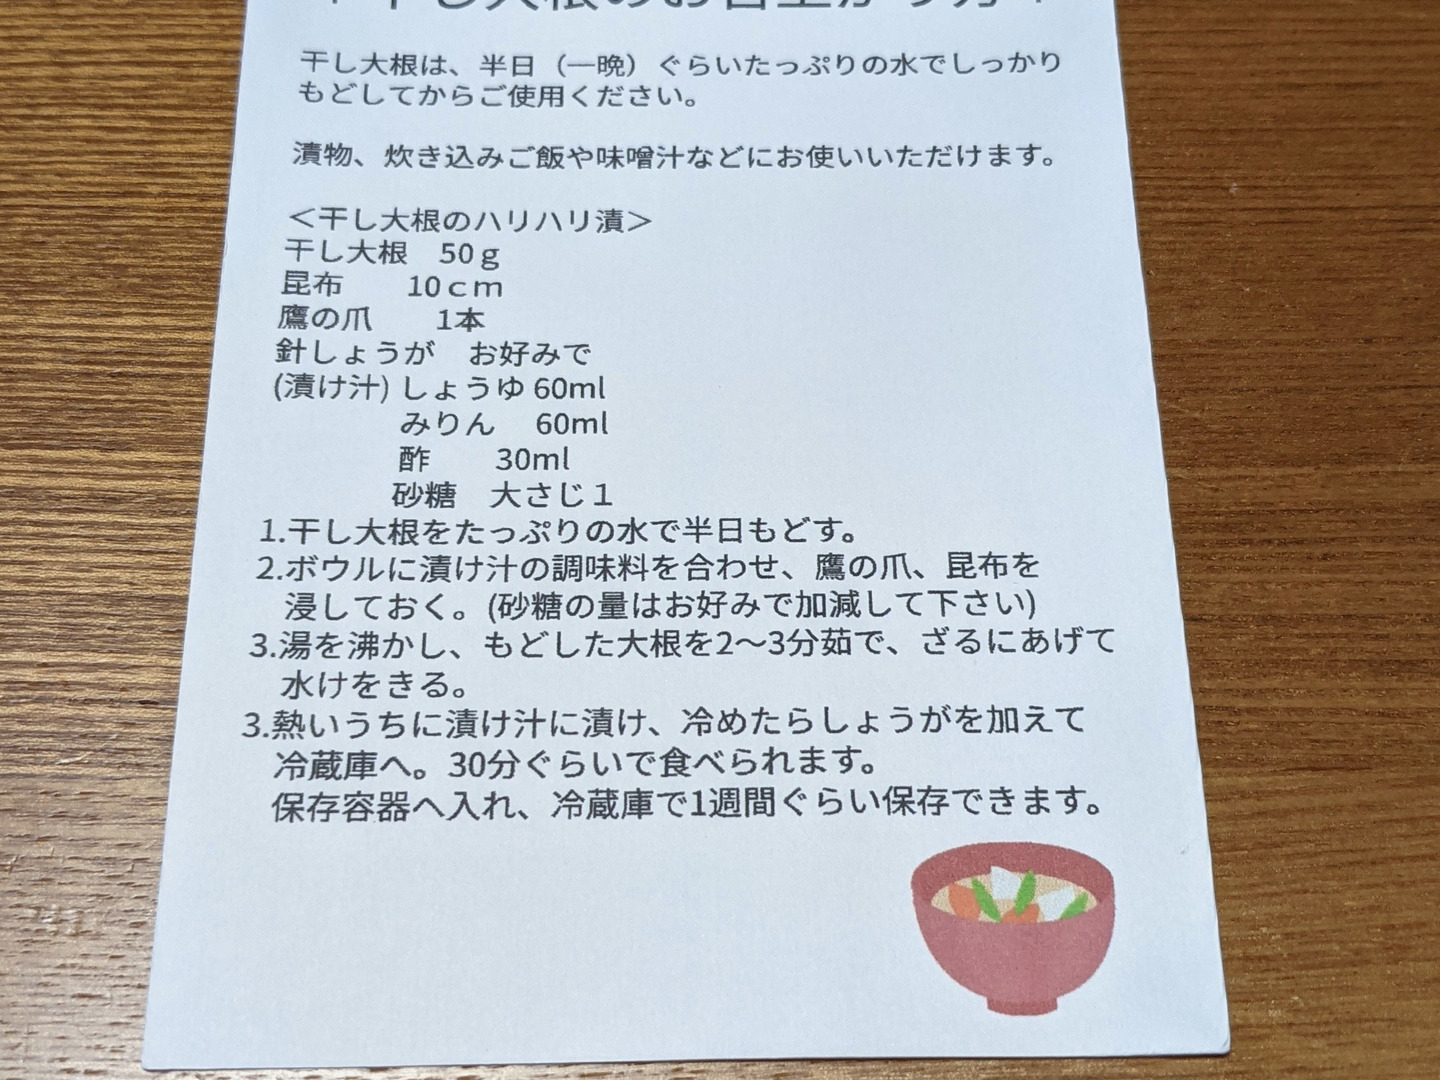 干し大根は、半日（一晩）ぐらいたっぷりの水でしっかり
もどしてからご使用ください。
漬物、炊き込みご飯や味噌汁などにお使いいただけます。
＜干し大根のハリハリ漬＞
干し大根　50ｇ
昆布　　10ｃｍ
鷹の爪　　1本
針しょうが　お好みで
(漬け汁) しょうゆ 60ml
みりん　60ml
酢　　30ml
砂糖　大さじ１
1.干し大根をたっぷりの水で半日もどす。
2.ボウルに漬け汁の調味料を合わせ、鷹の爪、昆布を
浸しておく。(砂糖の量はお好みで加減して下さい)
3.湯を沸かし、もどした大根を2～3分茹で、ざるにあげて
水けをきる。
3.熱いうちに漬け汁に漬け、冷めたらしょうがを加えて
冷蔵庫へ。30分ぐらいで食べられます。
保存容器へ入れ、冷蔵庫で1週間ぐらい保存できます。